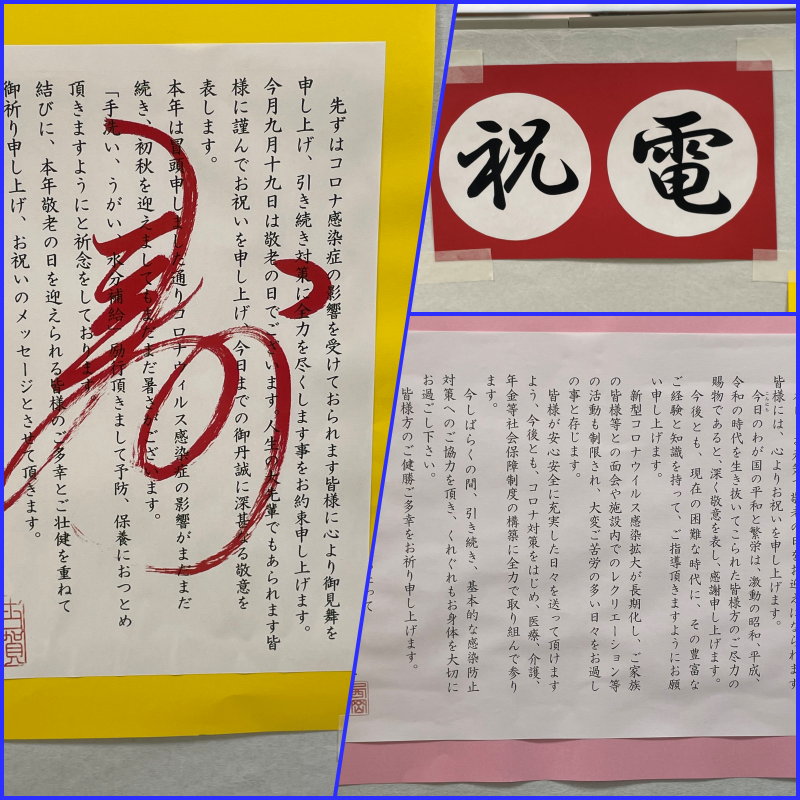 先ずはコロナ感染症の影響を受けておられます皆様に心より御見舞を
申し上げ、引き続き対策に全力を尽くします事をお約束申し上げます。
今月九月十九日は敬老の日でございます。人生の大先輩でもあられます皆
様に謹んでお祝いを申し上げ、今日までの御丹誠に深甚なる敬意を
表します。
本年は冒頭申しました通りコロナウィルス感染症の影響がまだまだ
続き、初秋を迎えましてもまだまだ暑さがございます。
「手洗い、うがい、水分補給」励行頂きまして予防、保養におつとめ
頂きますようにと祈念をしております。
結びに、本年敬老の日を迎えられる皆様のご多幸とご壮健を重ねて
御祈り申し上げ、お祝いのメッセージとさせて頂きます。
寿
祝電
皆様には、心よりお祝いを申し上げます。
今日のわが国の平和と繁栄は、激動の昭和、平成、
令和の時代を生き抜いてこられた皆様方のご尽力の
賜物であると、深く敬意を表し、感謝申し上げます。
今後とも、現在の困難な時代に、その豊富な
ご経験と知識を持って、ご指導頂きますようにお願
い申し上げます。
新型コロナウイルス感染拡大が長期化し、ご家族
の皆様等との面会や施設内でのレクリエーション等
の活動も制限され、大変ご苦労の多い日々をお過し
の事と存じます。
皆様が安心安全に充実した日々を送って頂けます
よう、今後とも、コロナ対策をはじめ、医療、介護、
年金等社会保障制度の構築に全力で取り組んで参り
ます。
今しばらくの間、引き続き、基本的な感染防止
対策へのご協力を頂き、くれぐれもお身体を大切に
お過ごし下さい。
皆様方のご健勝ご多幸をお祈り申し上げます。